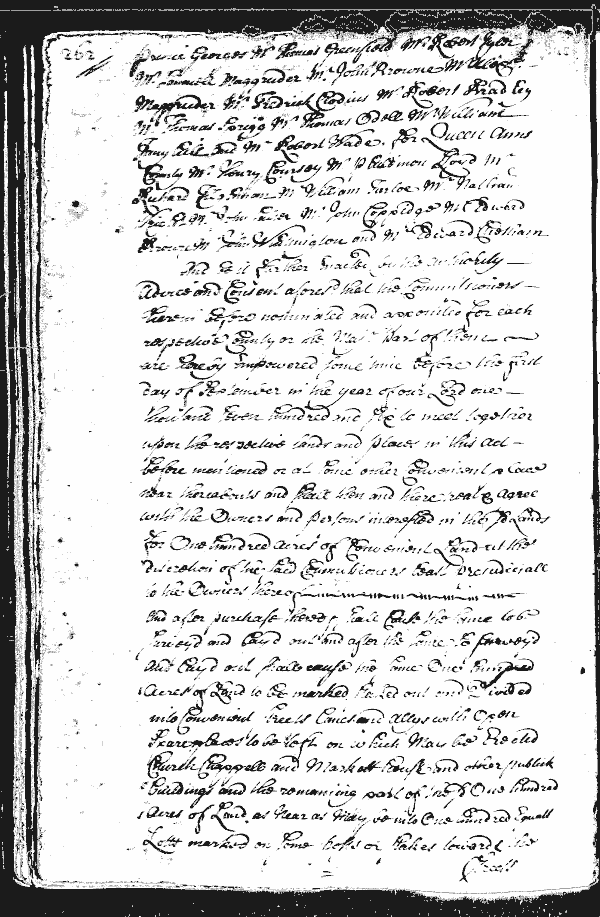 262
Prince Georges Mr Thomas Greenfield Mr Robert Tyler
Mr Samuell Magruder Mr John Browne Mr Alexr
Magruder Mr Fredrick Clodius Mr Robert Bradley
Mr Thomas Sprigg Mr Thomas Odell Mr William
and Mr Robert Wade. For Queen Anns
County Mr Henry Coursey Mr Philemon Lloyd Mr
Richard Mr William Turloe Mr Nathan
Mr John Mr John Coppidge Mr Edward
Browne Mr John and Mr Edward Chetham
And be it further Enacted by the authority
Advice and Consent aforesd that the Commissioners
herein before nominated and appointed for each
respective County or the Majr part of them
are hereby impowered some time before the first
day of September in the year of our Lord one
thousand seven hundred and six to meet together
upon the respective lands and places in this act
before mentioned or at some other Convenient place
near thereabouts and shall then and there treat & agree
with the Owners and persons interested in the sd Lands
for One hundred acres of Convenient Land at the
discretion of the said Commissioners least prejudiciall
to the Owners thereof
and after purchase thereof shall Cause the same to be
Surveyd and Layd out and after the same so surveyd
and Layd out shall cause the same One hundred
Acres of Land to be marked staked out and divided
into Convenient Streets Lanes and Alleys with Open
Space places to be left on which May be Erected
Church Chappell and Markett house and other publick
buildings and the remaining part of the sd One hundred
Acres of Land as Near as May be into One hundred Equall
Lotts marked on some posts or stakes towards the
Streets